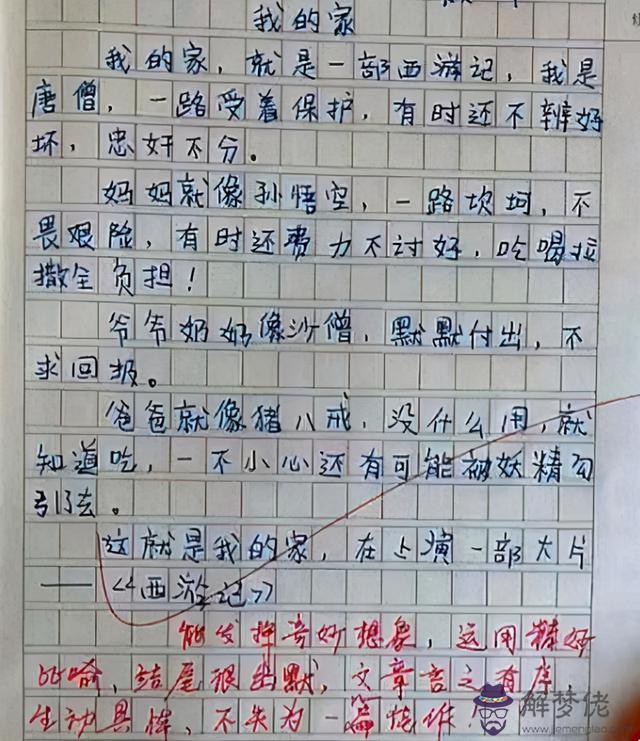 我的家
我的家，就是一部西游记，我是
唐僧，一路受着保护，有时还不辨好
坏，忠奸不分。
妈妈就像孙悟空，一路坎坷，不
畏艰险，有时还费力不讨好，吃喝拉
撒全负担！
爷爷奶奶像沙僧，默默付出，不
求回报。
爸爸就像猪八戒，没什么用，就
知道吃，一不小心还有可能被妖精勾
引去。
这就是我的家，在上演一部大片
——《西游记》
能发挥奇妙想象，运用精妙
比喻，结尾很幽默，文章言之有序，
生动具体，不失为一篇佳作！
解梦佬
www.jiemenglao.com